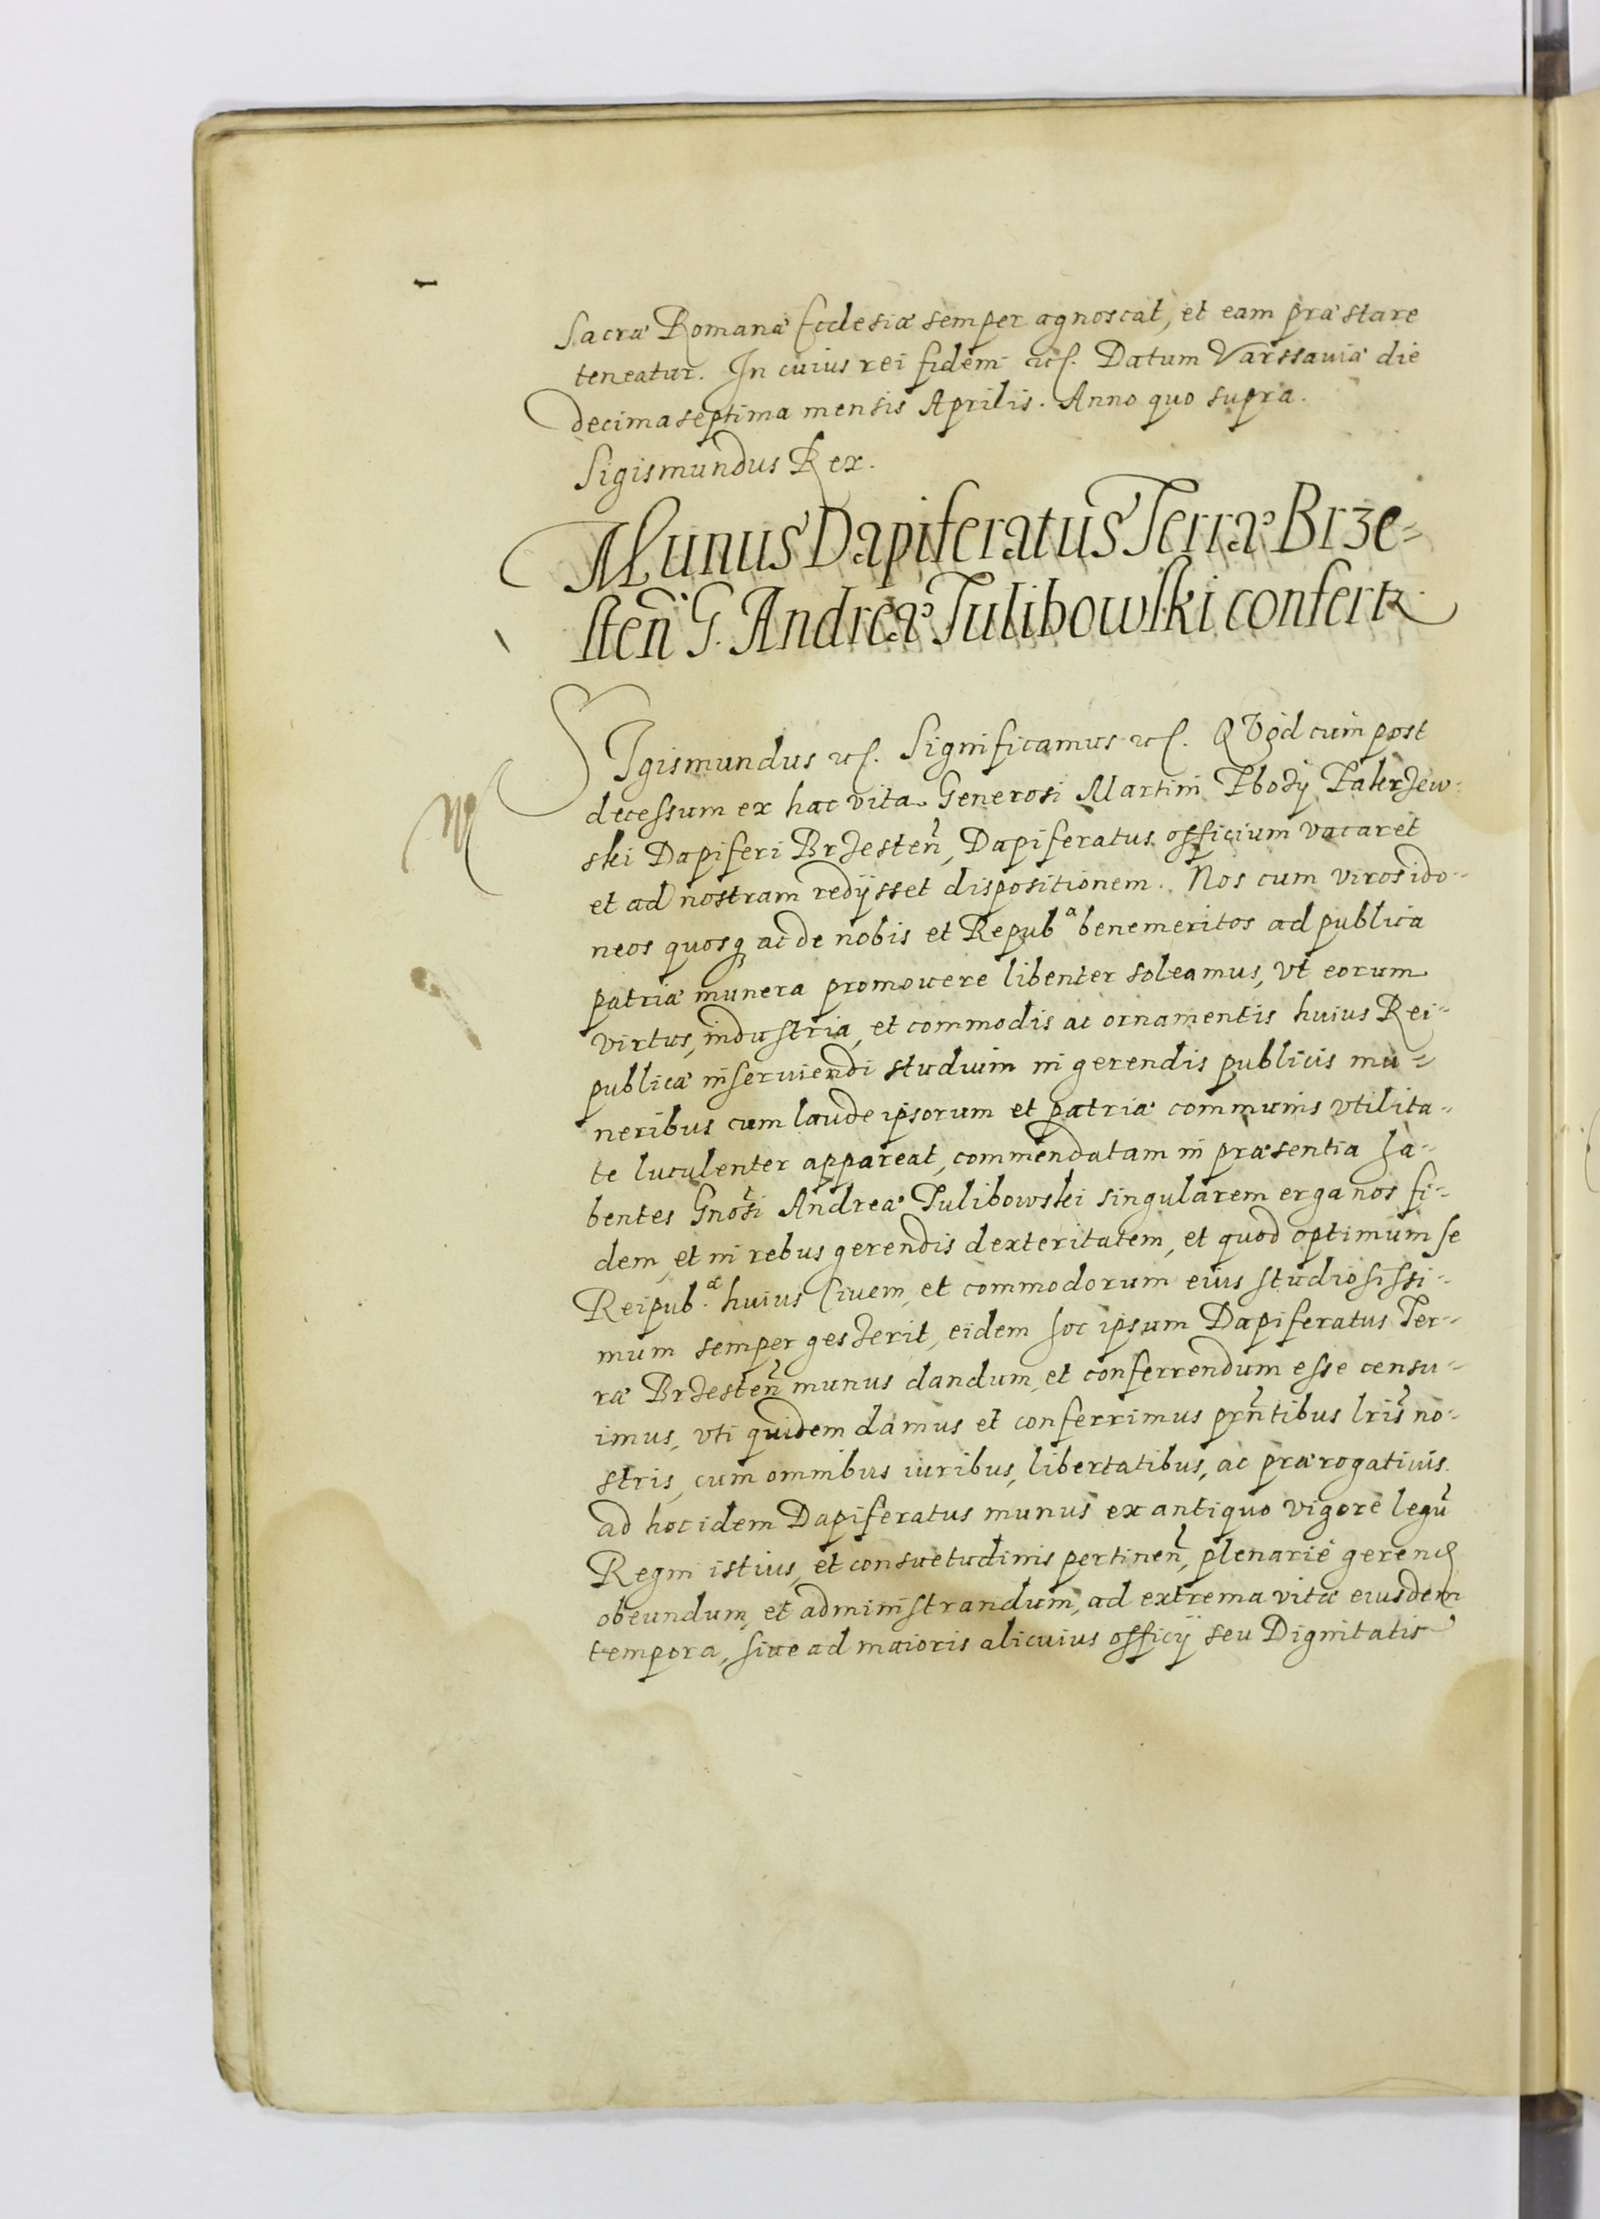 Sacræ Romanæ Ecclesiæ semper agnoscat, et eam præstare
teneatur. In cuius rei fidem etc. Datum Varssaviæ die
decimaseptima mensis Aprilis. Anno quo supra.
Sigismundus Rex.
Munus Dapiferatus Terræ Brze-
sten̄ G. Andreæ Tulibowski confertr
SIgismundus etc. Significamus etc. QVod cum post
decessum ex hac vita Generosi Martini
ski Dapiferi Brzesten̄, Dapiferatus officium vacaret
et ad nostram redijsset dispositionem. Nos cum viros ido-
neos quosq ac de nobis et Repubᵃ benemeritos ad publica
patriæ munera promouere libenter soleamus, vt eorum
virtus, industria, et commodis ac ornamentis huius Rei-
publicæ inseruiendi studium in gerendis publicis mu-
neribus cum laude ipsorum et patriæ communis vtilita-
te luculenter appareat, commendatam in præsentia ha-
bentes Gnosi Andreæ Tulibowski singularem erga nos fi-
dem, et in rebus gerendis dexteritatem, et quod optimum se
Reipub.æ huius Ciuem, et commodorum eius studiosissi-
mum semper gesserit, eidem hoc ipsum Dapiferatus Ter-
ræ Brzesten̄ munus dandum, et conferrendum esse censu-
imus, vti quidem damus et conferrimus prn̄tibus lris̄ no-
stris, cum omnibus iuribus, libertatibus, ac prærogatiuis
ad hoc idem Dapiferatus munus ex antiquo vigore legū
Regni istius, et consuetudinis pertinen̄, plenariè gerend
obeundum, et administrandum, ad extrema vitæ eiusdem
tempora, siue ad maioris alicuius officij seu Dignitatis